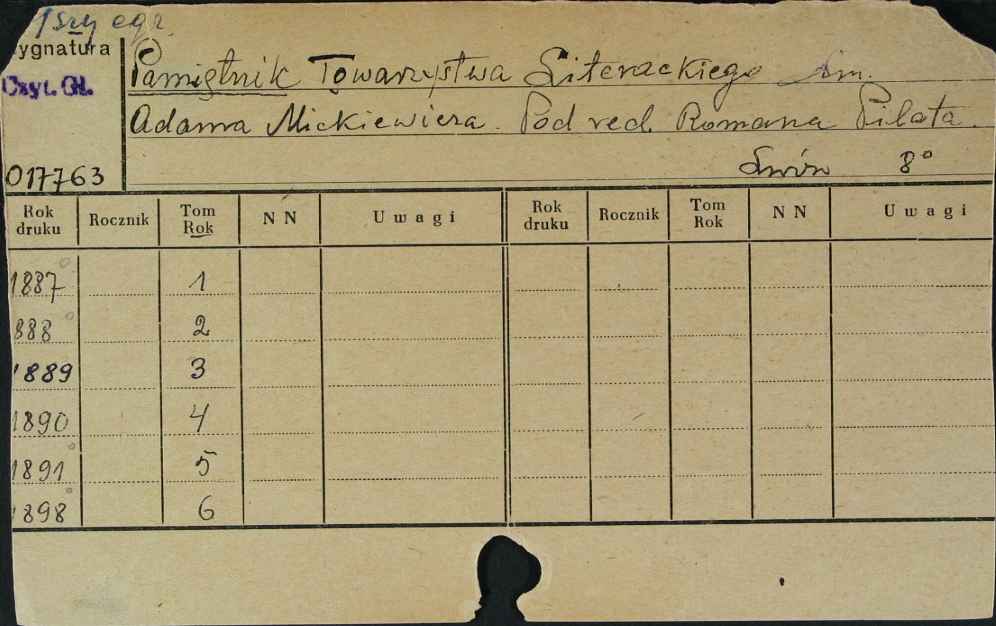 1szy egz.
ygnatura
Czyt. Gł.
017763
Pamiętnik Towarzystwa Literackiego im.
Adama Mickiewicza. Pod red. Romana Pilata.
Lwów 8°
Rok druku Rocznik Tom Rok N N Uwagi Rok druku Rocznik Tom Rok N N Uwagi
1887 1
888 2
1889 3
1890 4
1891 5
1898 6